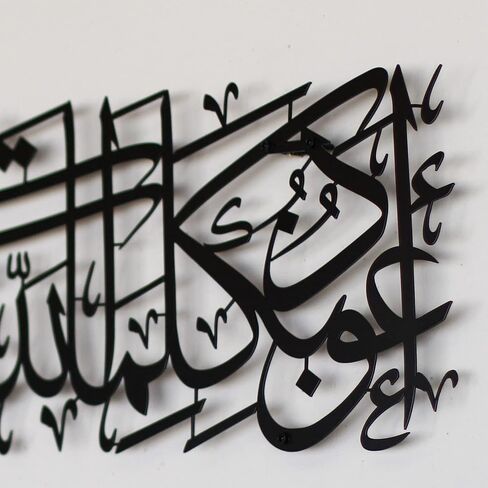 أعوذ بكلمات الله